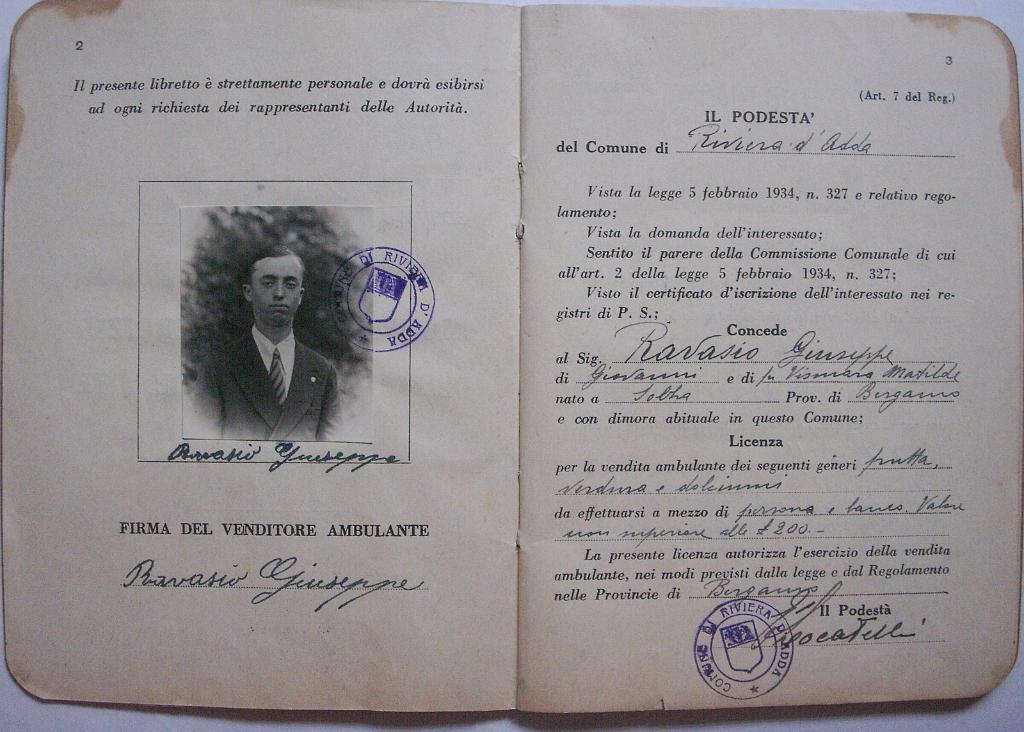 2
Il presente libretto è strettamente personale e dovrà esibirsi
ad ogni richiesta dei rappresentanti delle Autorità.
COMUNE DI RIVIERA D'ADDA
Ravasio Giuseppe
FIRMA DEL VENDITORE AMBULANTE
Ravasio Giuseppe
3
(Art. 7 del Reg.)
IL PODESTA'
del Comune di Riviera d'Adda
Vista la legge 5 febbraio 1934, n. 327 e relativo rego-
lamento;
Vista la domanda dell'interessato;
Sentito il parere della Commissione Comunale di cui
all'art. 2 della legge 5 febbraio 1934, n. 327;
Visto il certificato d'iscrizione dell'interessato nei re-
gistri di P. S.;
Concede
al Sig. Ravasio Giuseppe
di Giovanni e di fu Vismara Matilde
nato a Solza Prov. di Bergamo
e con dimora abituale in questo Comune;
Licenza
per la vendita ambulante dei seguenti generi frutta,
verdura e dolciumi
da effettuarsi a mezzo di persona e banco. Valore
non superiore alle £ 200.-
La presente licenza autorizza l'esercizio della vendita
ambulante, nei modi previsti dalla legge e dal Regolamento
nelle Provincie di Bergamo
Il Podestà
Locatelli
COMUNE DI RIVIERA D'ADDA